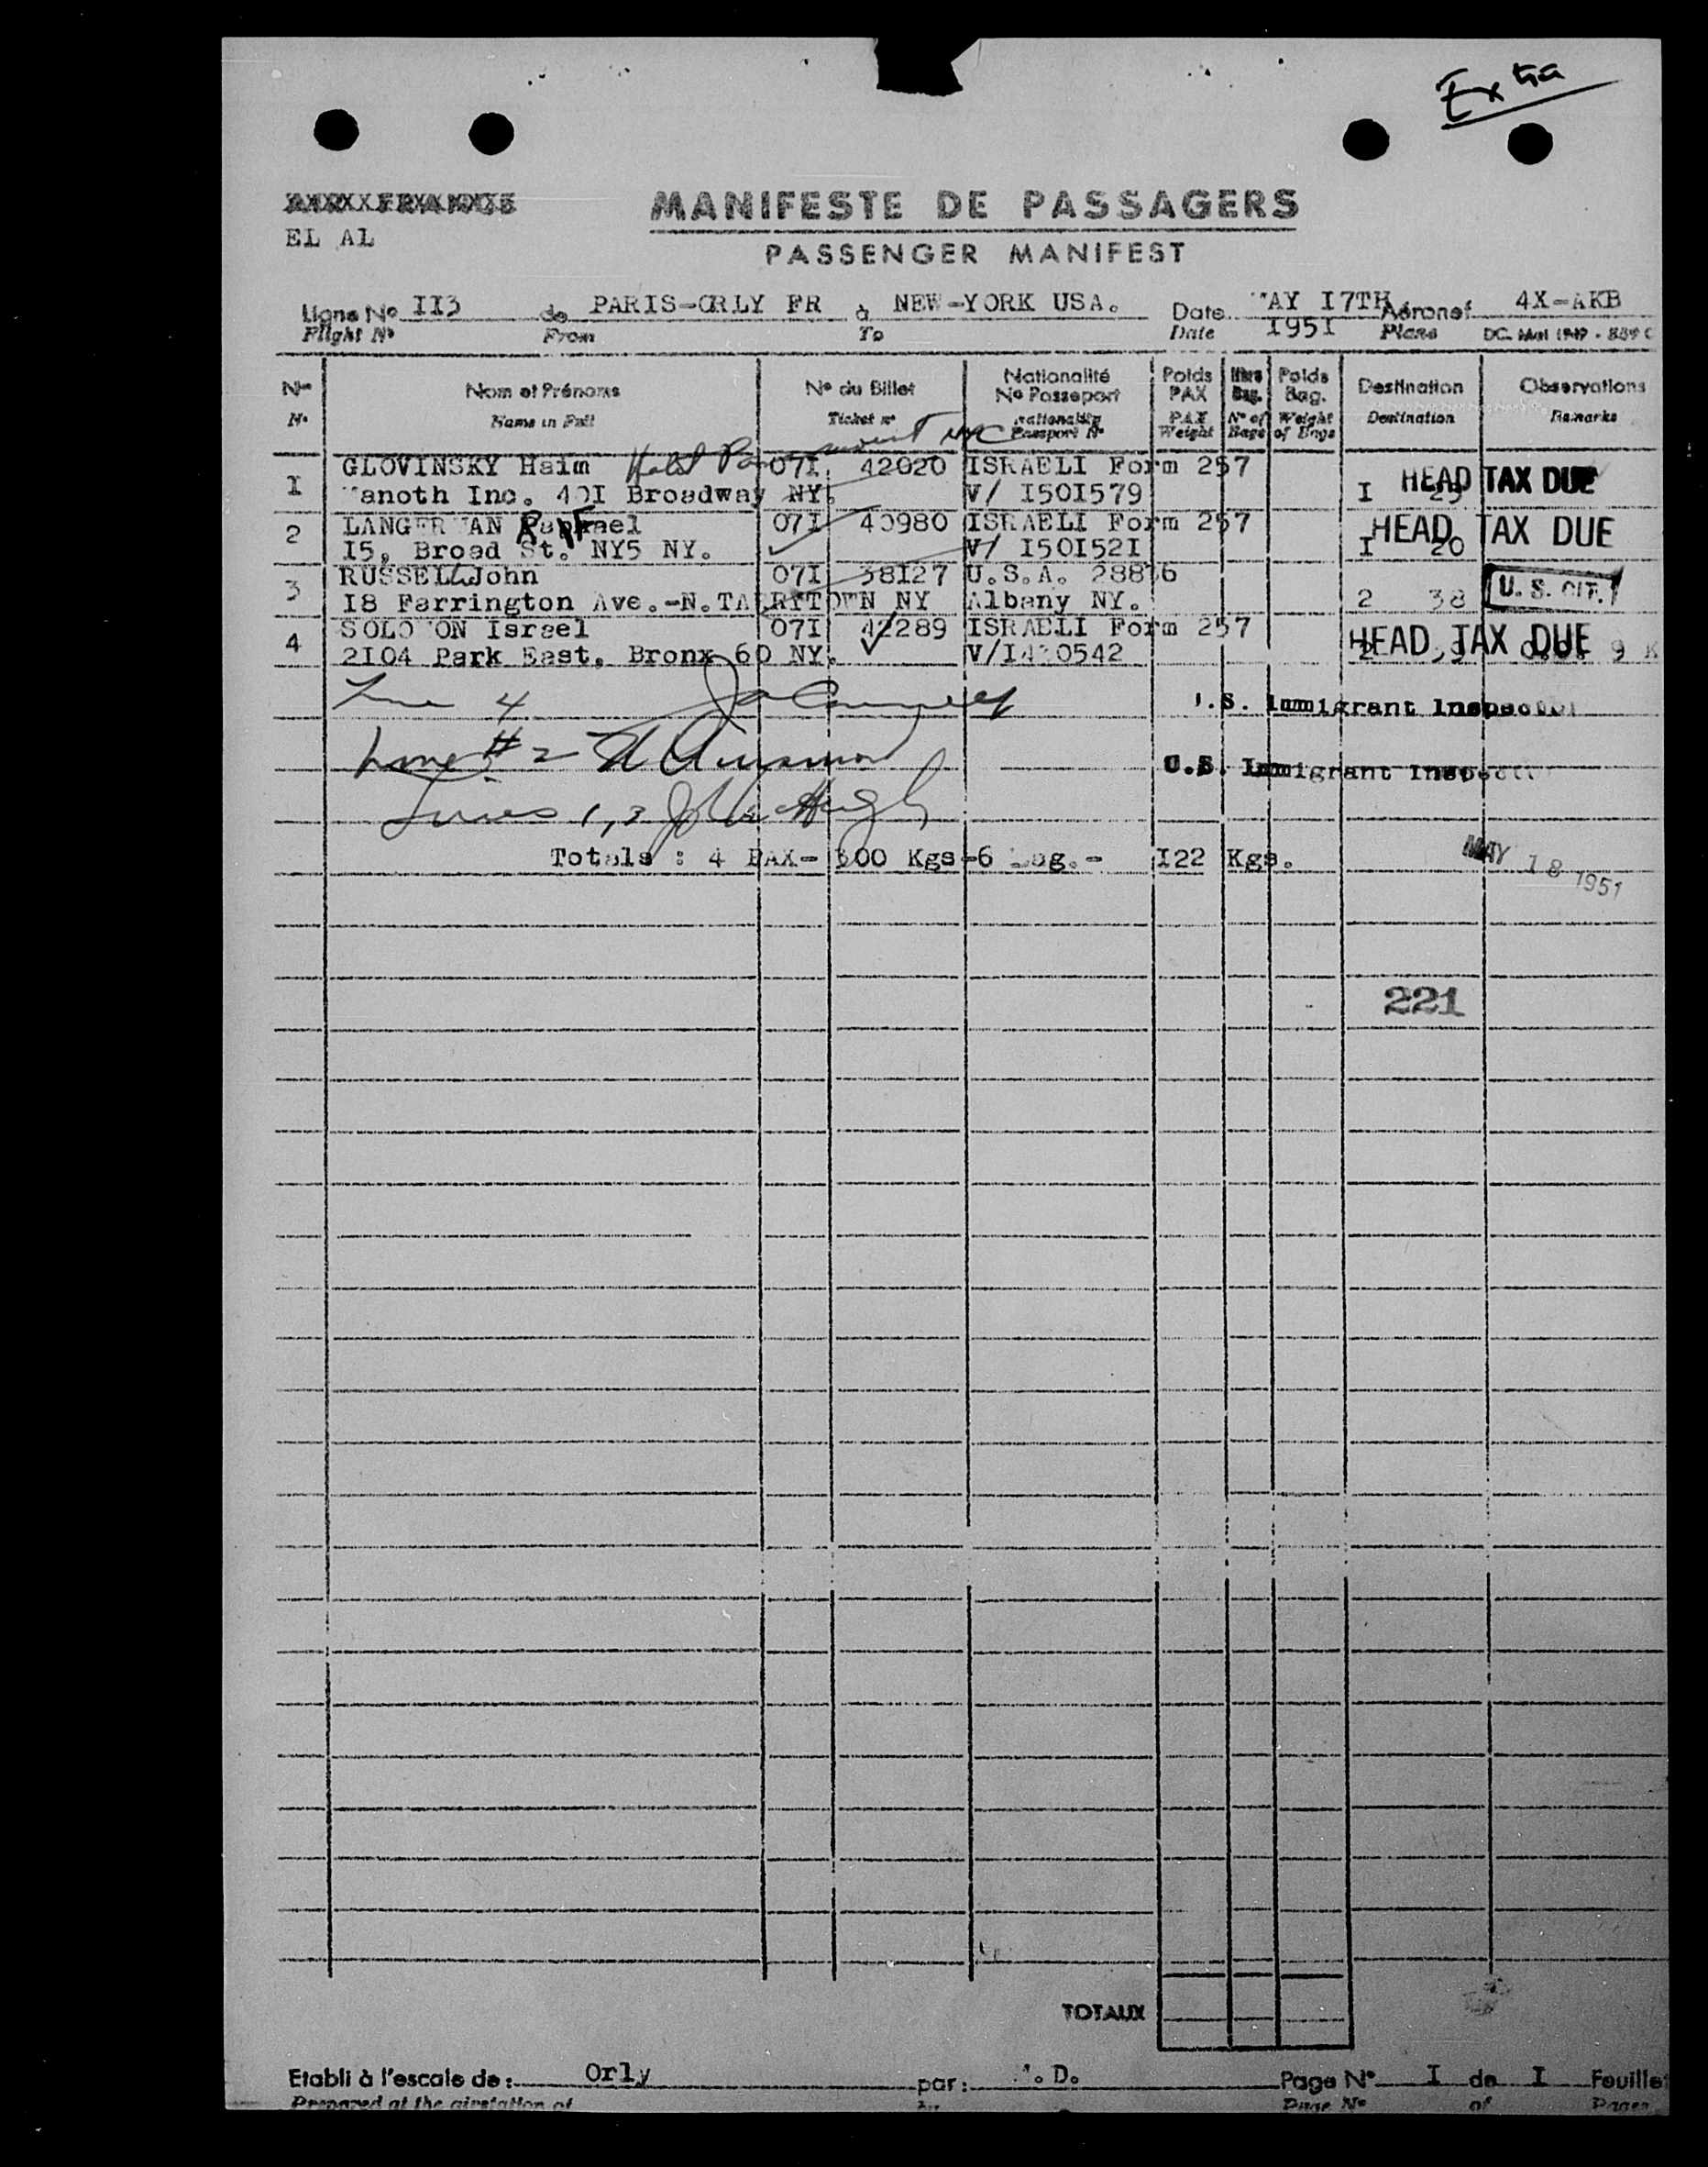 Extra
EL AL
MANIFESTE DE PASSAGERS
PASSENGER MANIFEST
Ligne No II3 de PARIS-ORLY FR à NEW-YORK USA. Date AY I7TH Aéronef 4X-AKB
Flight No From To Date I95I Plane
No Nom et Prénoms No du Billet Nationalité No Passeport Poids PAX Bag. Poids Bag. Destination Observations
No Name in Full Ticket no Nationality Passport No PAX Weight No of Bags Weight of Bags Destination Remarks
I GLOVINSKY Haim 07I 42020 ISRAELI Form 257 HEAD TAX DUE
anoth Inc. 40I Broadway NY. V/ I50I579 I
2 LANGER AN Raphael 07I 40980 ISRAELI Form 257 HEAD TAX DUE
I5, Broad St. NY5 NY. V/ I50I52I I 20
3 RUSSELL John 07I 38I27 U.S.A.
I8 Farrington Ave.-N.TARRYTOWN NY Albany NY. 2 38 U.S. CIT.
4 SOLO ON Israel 07I 42289 ISRAELI Form 257 HEAD TAX DUE
2I04 Park East, Bronx 60 NY.
Line 4 U.S. Immigrant Inspector
Line #2 U.S. Immigrant Inspector
Lines 1,3
Totals : 4 PAX- 300 Kgs-6 Bag.- I22 Kgs.
MAY 18 1951
221
TOTAUX
Etabli à l'escale de: Orly par: . D. Page No I de I Feuille
Prepared at the airstation of Page No of Pages